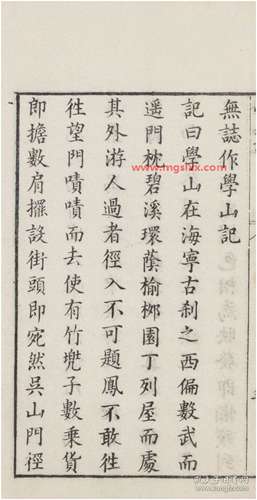 無誌作學山記
記曰學山在海寧古刹之西偏數武而
遥門枕碧溪環蔭榆柳園丁列屋而處
其外游人過者徑入不可題鳳不敢徃
徃望門嘖嘖而去使有竹兠子數乗貨
郎擔數肩擺設街頭即宛然吳山門徑
www.mgshx.com